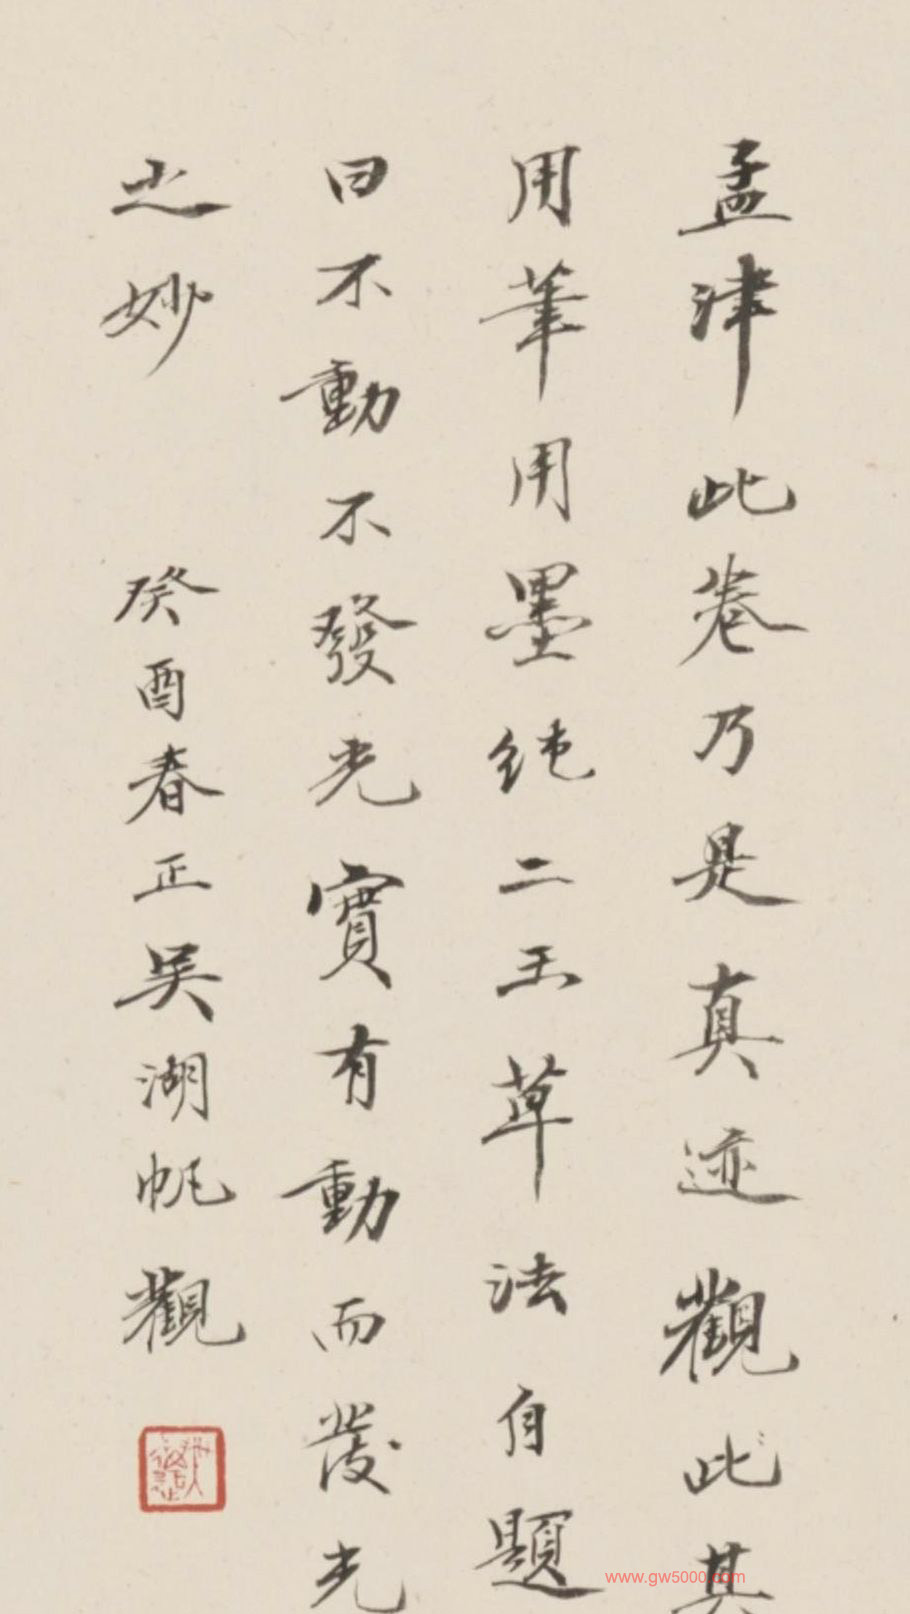 孟津此卷乃是真迹觀此其
用筆用墨純二王草法自題
曰不動不發光實有動而發光
之妙
癸酉春正吳湖帆觀
www.gw5000.com